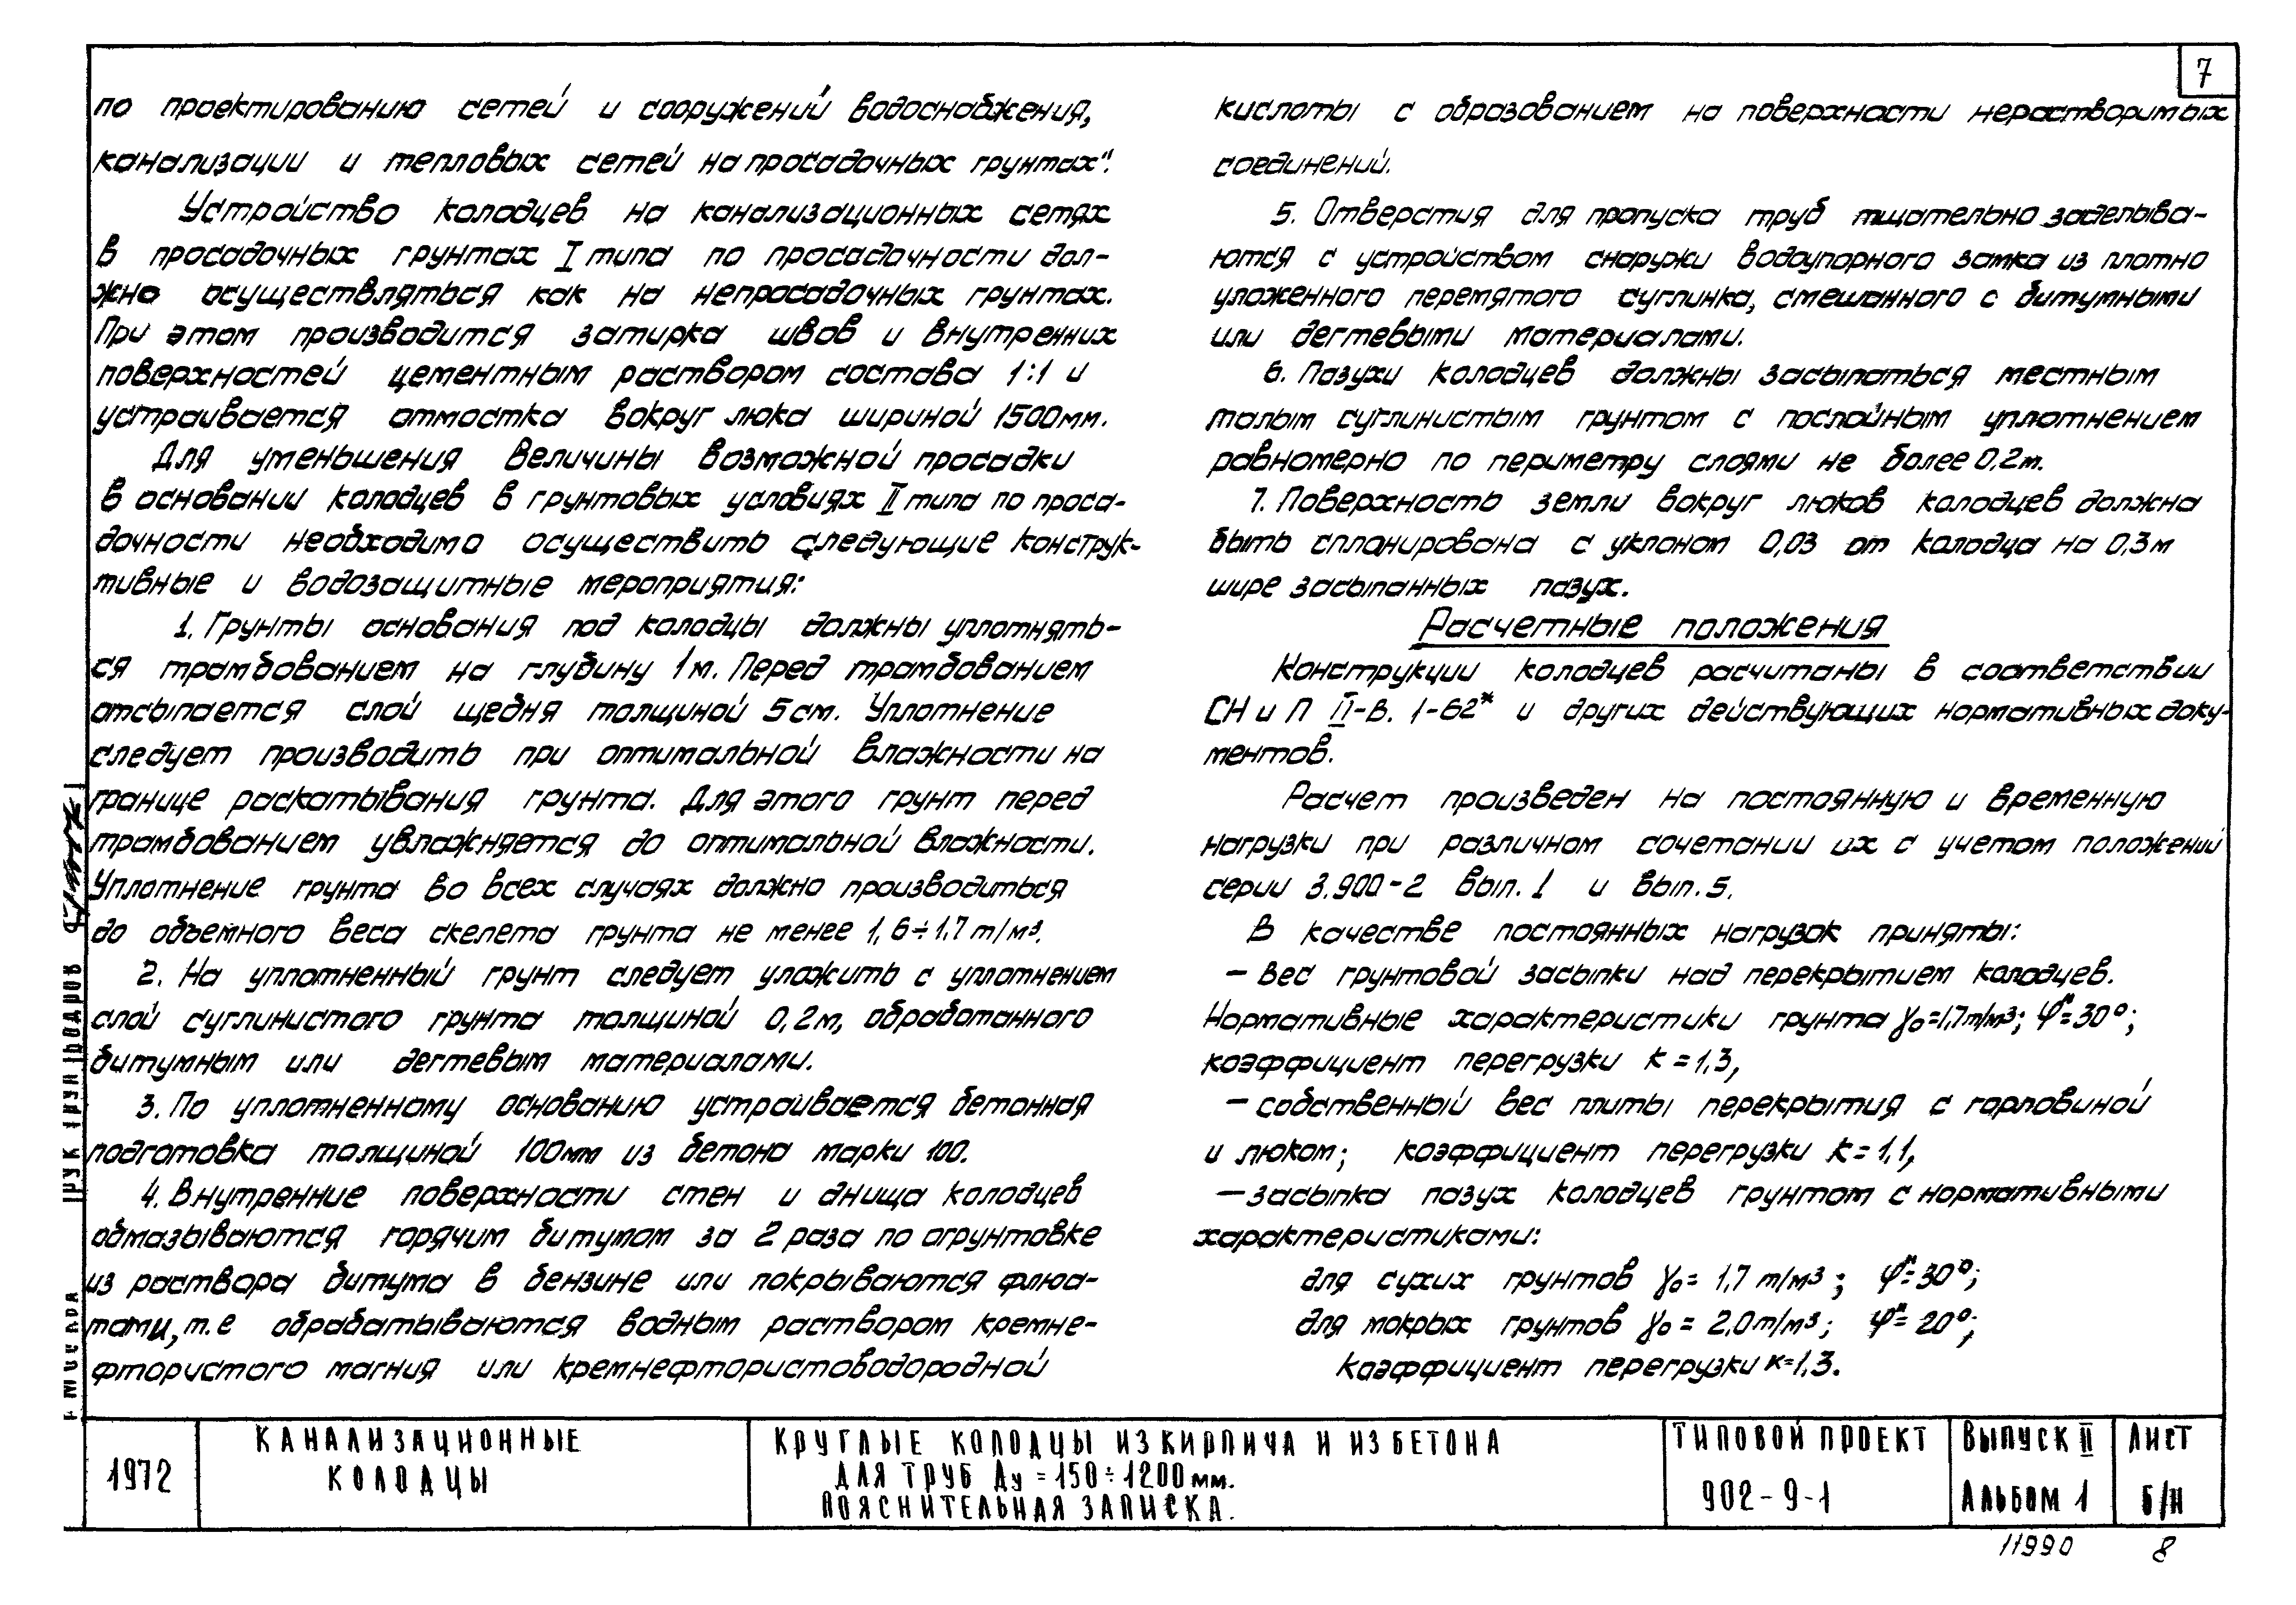 7
по проектированию сетей и сооружений водоснабжения,
канализации и тепловых сетей на просадочных грунтах".
Устройство колодцев на канализационных сетях
в просадочных грунтах I типа по просадочности дол-
жно осуществляться как на непросадочных грунтах.
При этом производится затирка швов и внутренних
поверхностей цементным раствором состава 1:1 и
устраивается отмостка вокруг люка шириной 1500мм.
Для уменьшения величины возможной просадки
в основании колодцев в грунтовых условиях II типа по проса-
дочности необходимо осуществить следующие конструк-
тивные и водозащитные мероприятия:
1. Грунты основания под колодцы должны уплотнять-
ся трамбованием на глубину 1м. Перед трамбованием
отсыпается слой щебня толщиной 5см. Уплотнение
следует производить при оптимальной влажности на
границе раскатывания грунта. Для этого грунт перед
трамбованием увлажняется до оптимальной влажности.
Уплотнение грунта во всех случаях должно производиться
до объемного веса скелета грунта не менее 1,6÷1,7 т/м³.
2. На уплотненный грунт следует уложить с уплотнением
слой суглинистого грунта толщиной 0,2м, обработанного
битумным или дегтевым материалами.
3. По уплотненному основанию устраивается бетонная
подготовка толщиной 100мм из бетона марки 100.
4. Внутренние поверхности стен и днища колодцев
обмазываются горячим битумом за 2 раза по огрунтовке
из раствора битума в бензине или покрываются флюа-
тами, т.е обрабатываются водным раствором кремне-
фтористого магния или кремнефтористоводородной
кислоты с образованием на поверхности нерастворимых
соединений.
5. Отверстия для пропуска труб тщательно заделыва-
ются с устройством снаружи водоупорного замка из плотно
уложенного перемятого суглинка, смешанного с битумными
или дегтевыми материалами.
6. Пазухи колодцев должны засыпаться местным
талым суглинистым грунтом с послойным уплотнением
равномерно по периметру слоями не более 0,2м.
7. Поверхность земли вокруг люков колодцев должна
быть спланирована с уклоном 0,03 от колодца на 0,3м
шире засыпанных пазух.
Расчетные положения
Конструкции колодцев расчитаны в соответствии
СН и П II-В. 1-62* и других действующих нормативных доку-
ментов.
Расчет произведен на постоянную и временную
нагрузки при различном сочетании их с учетом положений
серии 3.900-2 вып. 1 и вып. 5.
В качестве постоянных нагрузок приняты:
— вес грунтовой засыпки над перекрытием колодцев.
Нормативные характеристики грунта γ₀=1,7т/м³; φᴴ=30°;
коэффициент перегрузки к=1,3,
— собственный вес плиты перекрытия с горловиной
и люком; коэффициент перегрузки к=1,1,
— засыпка пазух колодцев грунтом с нормативными
характеристиками:
для сухих грунтов γ₀= 1,7 т/м³; φᴴ=30°;
для мокрых грунтов γ₀ = 2,0т/м³; φᴴ= 20°;
коэффициент перегрузки к=1,3.
1972
КАНАЛИЗАЦИОННЫЕ
КОЛОДЦЫ
КРУГЛЫЕ КОЛОДЦЫ ИЗ КИРПИЧА И ИЗ БЕТОНА
ДЛЯ ТРУБ Ду =150÷1200мм.
ПОЯСНИТЕЛЬНАЯ ЗАПИСКА.
ТИПОВОЙ ПРОЕКТ
902-9-1
ВЫПУСК II
АЛЬБОМ 1
ЛИСТ
Б/Н
11990 8